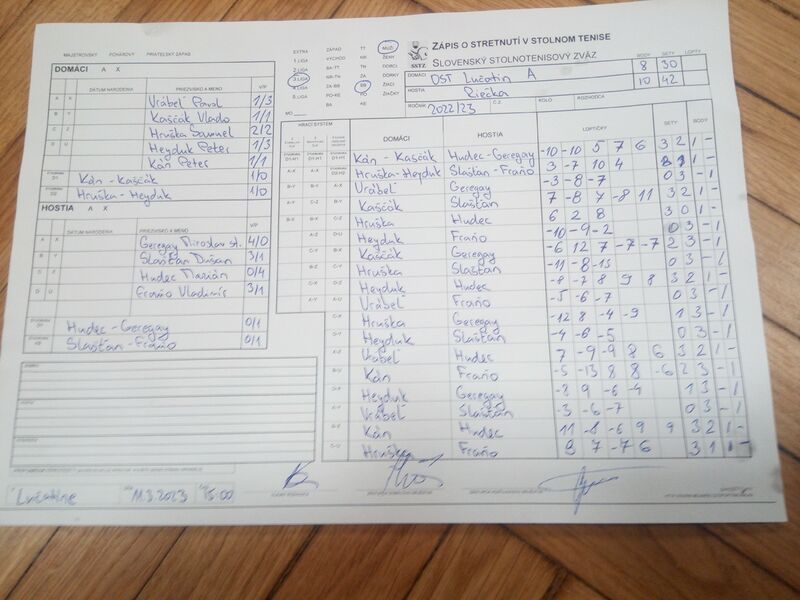 MAJSTROVSKÝ POHÁROVÝ PRIATEĽSKÝ ZÁPAS
EXTRA ZÁPAD TT MUŽI
1.LIGA VÝCHOD NR ŽENY
2.LIGA BA-TT TN DORCI
3.LIGA NR-TN ZA DORKY
4.LIGA ZA-BB BB ŽIACI
5.LIGA PO-KE PO ŽIAČKY
BA KE
MO
SSTZ
ZÁPIS O STRETNUTÍ V STOLNOM TENISE
SLOVENSKÝ STOLNOTENISOVÝ ZVÄZ
BODY SETY LOPTY
DOMÁCI DST Lučatín A 8 30
HOSTIA Riečka 10 42
ROČNÍK 2022/23 Č.Z. KOLO ROZHODCA
DOMÁCI A X
DÁTUM NARODENIA PRIEZVISKO A MENO V/P
A X Vrábeľ Pavol 1/3
B Y Kaščák Vlado 1/1
C Z Hruška Samuel 2/2
D U Heyduk Peter 1/3
Kán Peter 1/1
ŠTVORHRA D1 Kán - Kaščák 1/0
ŠTVORHRA D2 Hruška - Heyduk 1/0
HOSTIA A X
DÁTUM NARODENIA PRIEZVISKO A MENO V/P
A X Geregay Miroslav st. 4/0
B Y Slašťan Dušan 3/1
C Z Hudec Marián 0/4
D U Fraňo Vladimír 3/1
Hudec - Geregay 0/1
Slašťan - Fraňo 0/1
HRACÍ SYSTÉM DOMÁCI HOSTIA LOPTIČKY SETY BODY
Kán - Kaščák Hudec - Geregay -10 -10 5 7 6 3 2 1 -
Hruška - Heyduk Slašťan - Fraňo 3 -7 10 4 3 1 1 -
Vrábeľ Geregay -3 -8 -7 0 3 - 1
Kaščák Slašťan 7 -8 7 -8 11 3 2 1 -
Hruška Hudec 6 2 8 3 0 1 -
Heyduk Fraňo -10 -9 -2 0 3 - 1
Kaščák Geregay -6 12 7 -7 -7 2 3 - 1
Hruška Slašťan -11 -8 -13 0 3 - 1
Heyduk Hudec -8 -7 8 9 8 3 2 1 -
Vrábeľ Fraňo -5 -6 -7 0 3 - 1
Hruška Geregay -12 8 -4 -9 1 3 - 1
Heyduk Slašťan -4 -6 -5 0 3 - 1
Vrábeľ Hudec 7 -9 -9 8 6 3 2 1 -
Kán Fraňo -5 -13 8 8 -6 2 3 - 1
Heyduk Geregay -8 9 -6 -4 1 3 - 1
Vrábeľ Slašťan -3 -6 -7 0 3 - 1
Kán Hudec 11 -8 -6 9 9 3 2 1 -
Hruška Fraňo 9 7 -7 6 3 1 1 -
Lučatíne 11.3.2023 15:00